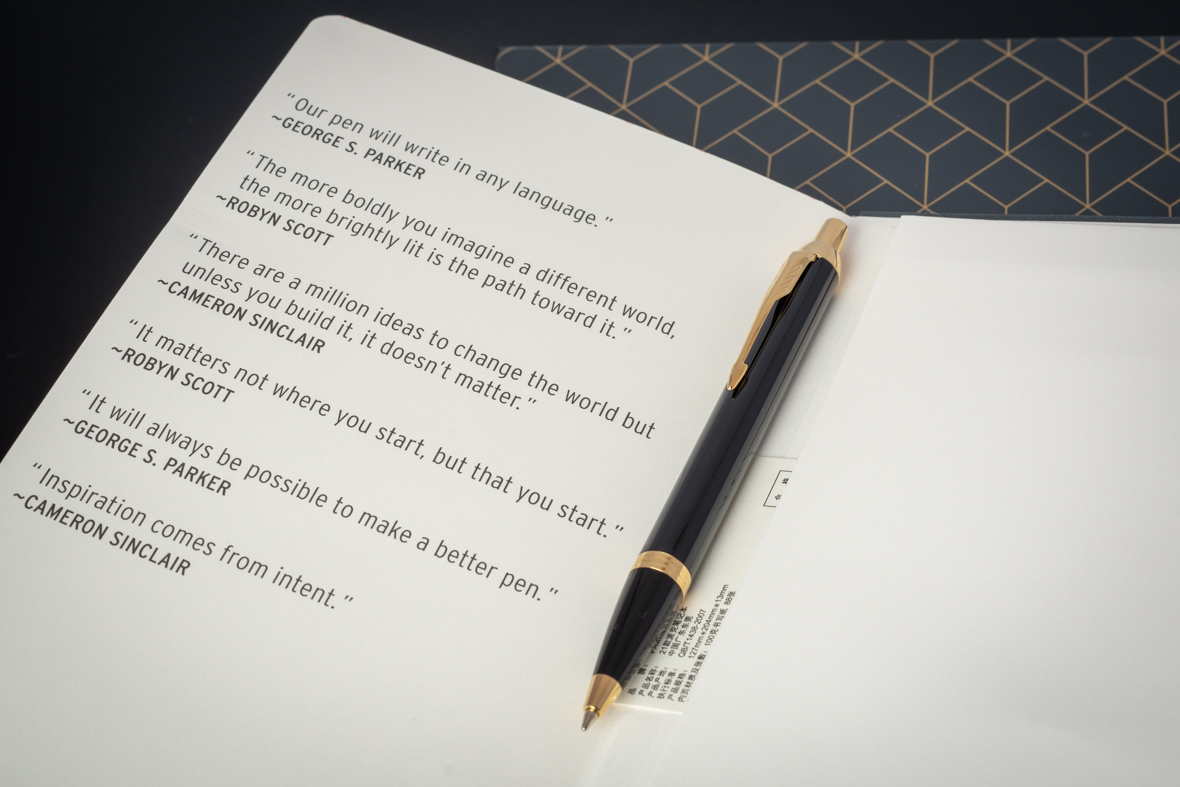 “Our pen will write in any language.”
~GEORGE S. PARKER
“The more boldly you imagine a different world,
the more brightly lit is the path toward it.”
~ROBYN SCOTT
“There are a million ideas to change the world but
unless you build it, it doesn’t matter.”
~CAMERON SINCLAIR
“It matters not where you start, but that you start.”
~ROBYN SCOTT
“It will always be possible to make a better pen.”
~GEORGE S. PARKER
“Inspiration comes from intent.”
~CAMERON SINCLAIR
产品名称:
产品产地: 中国广东东莞
执行标准: QB/T1438-2007
产品规格: 127mm*204mm*13mm
内页材质及张数: 100克书写纸 88张